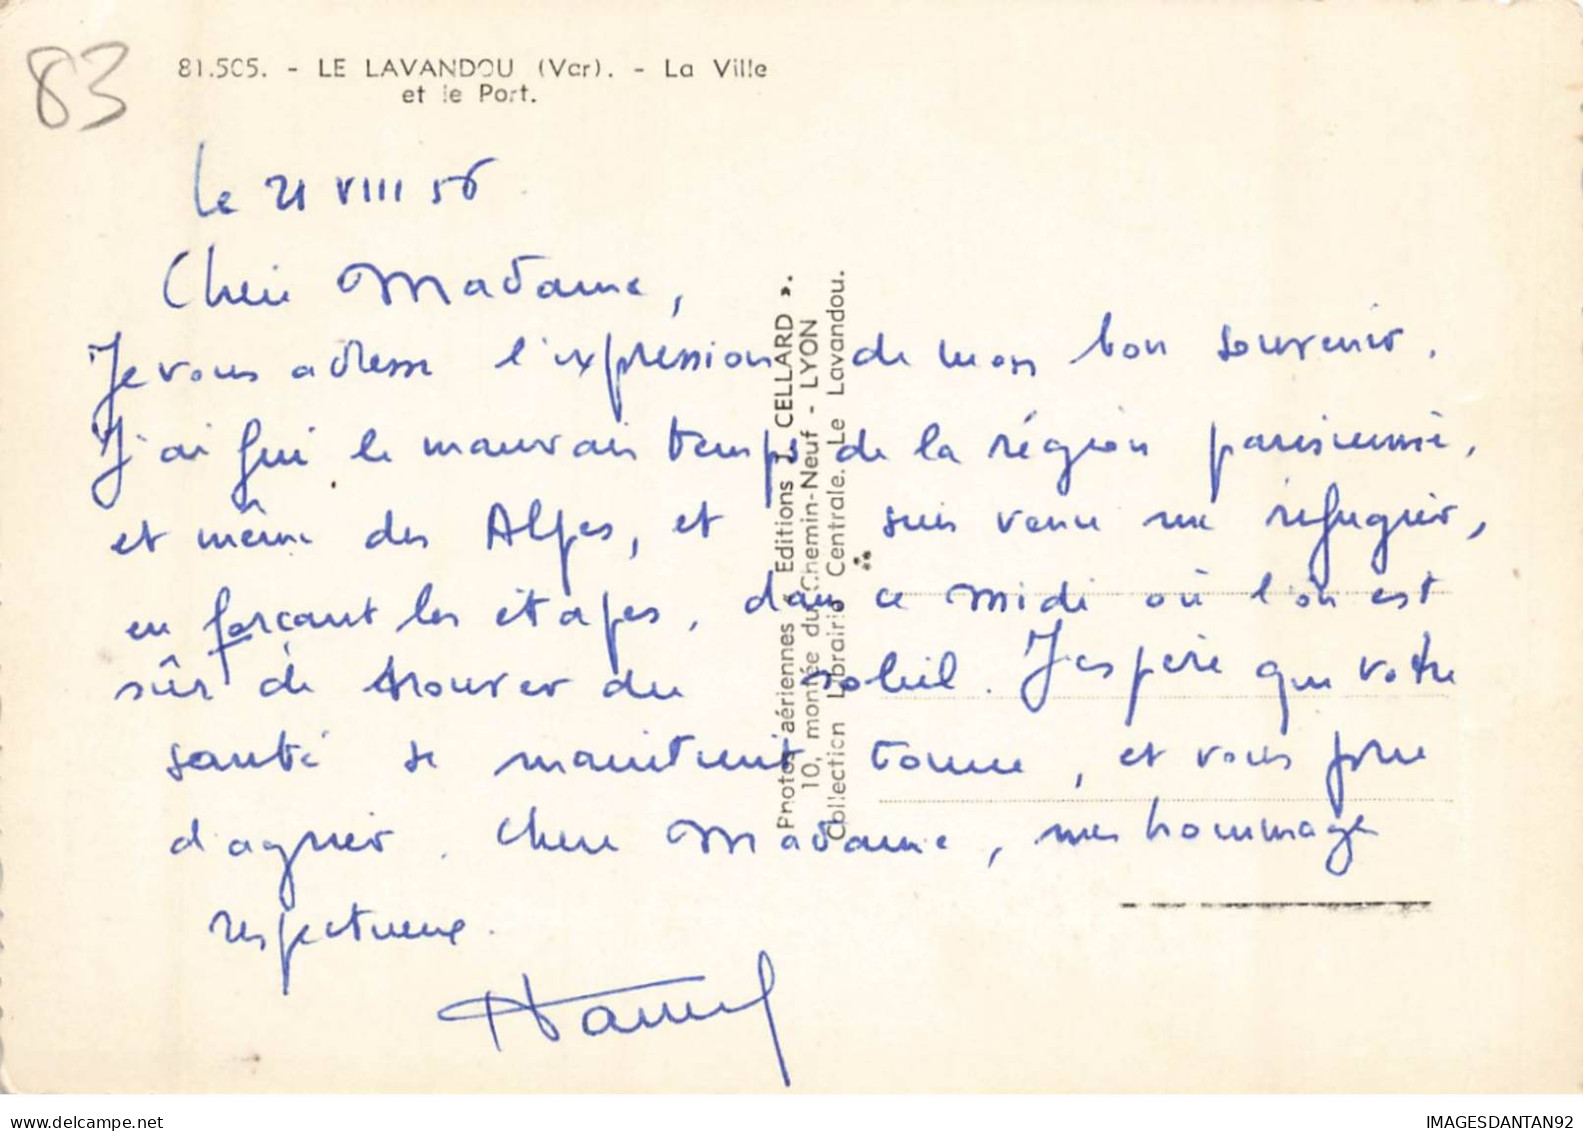 83
81.505. - LE LAVANDOU (Var). - La Ville
et le Port.
Le 21 VIII 56
Chère Madame,
Je vous adresse l'expression de mon bon souvenir.
J'ai fui le mauvais temps de la région parisienne,
et même des Alpes, et suis venu me réfugier,
en forçant les étapes, dans ce midi où l'on est
sûr de trouver du soleil. J'espère que votre
santé se maintient bonne, et vous prie
d'agréer, Chère Madame, mes hommages
respectueux.
Photos aériennes « Editions J. CELLARD ».
10, montée du Chemin-Neuf - LYON
Collection Librairie Centrale. Le Lavandou.
delcampe.net
IMAGESDANTAN92